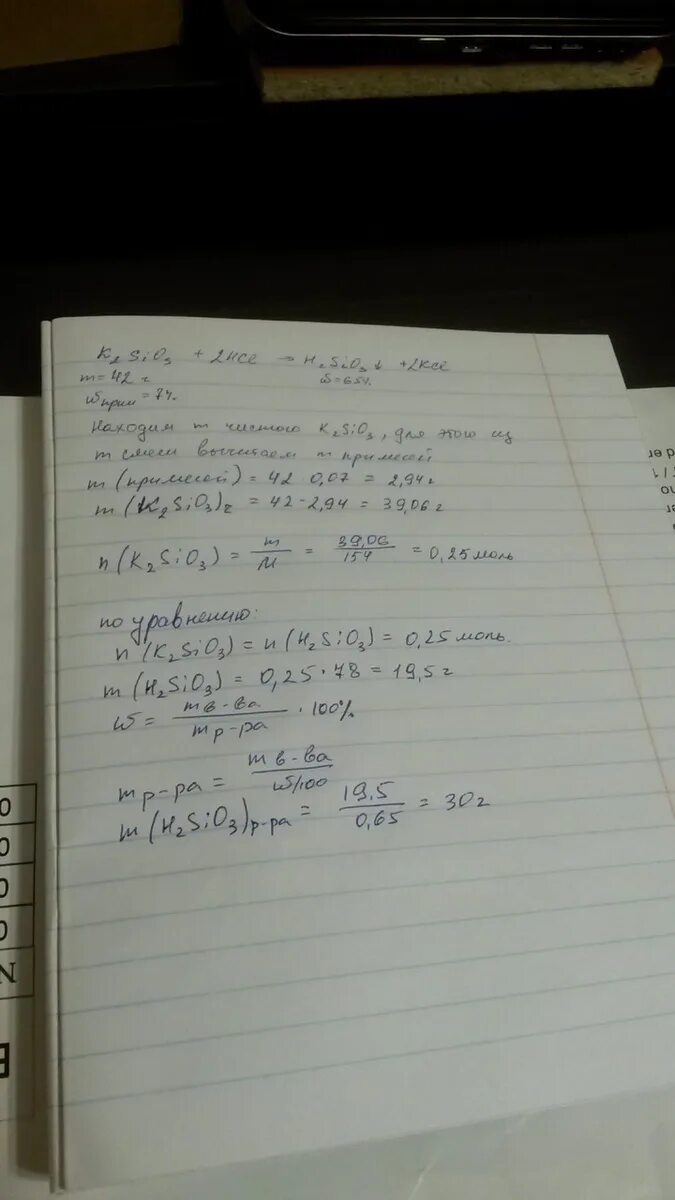 K₂SiO₃ + 2HCl → H₂SiO₃↓ + 2KCl
m = 42 г
ω = 65%
ωприм = 7%
Находим m чистого K₂SiO₃, для этого из
m смеси вычитаем m примесей
m (примесей) = 42 · 0,07 = 2,94 г
m (K₂SiO₃)г = 42 - 2,94 = 39,06 г
n (K₂SiO₃) = m/M = 39,06/154 = 0,25 моль
по уравнению:
n (K₂SiO₃) = n (H₂SiO₃) = 0,25 моль.
m (H₂SiO₃) = 0,25 · 78 = 19,5 г
ω = mв-ва/mр-ра · 100%
mр-ра = mв-ва/ω/100
m (H₂SiO₃)р-ра = 19,5/0,65 = 30 г